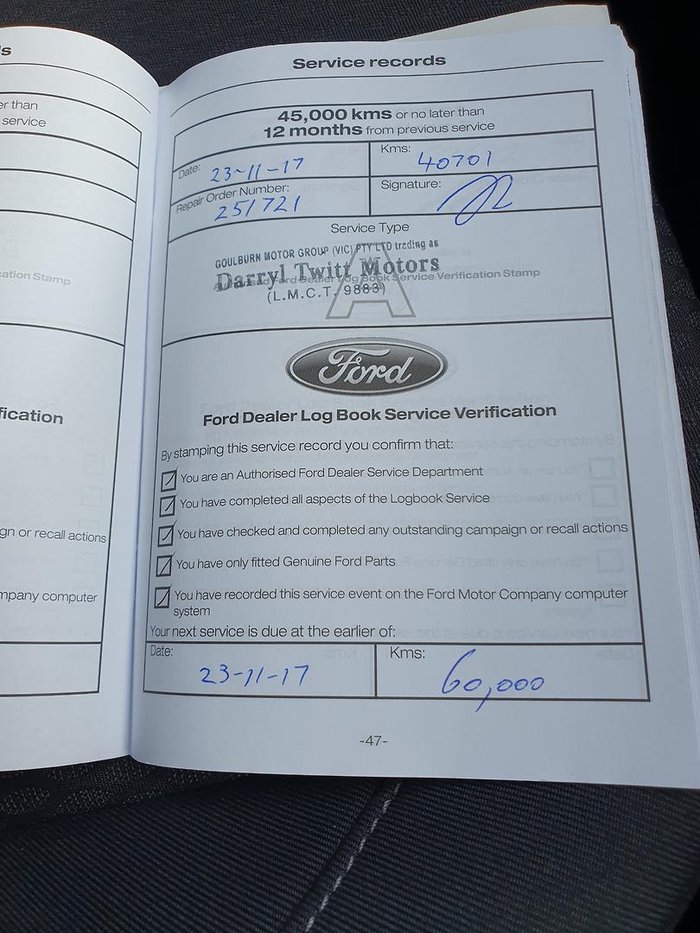 s
er than
service
ation Stamp
fication
gn or recall actions
mpany computer
Service records
45,000 kms or no later than
12 months from previous service
Date: 23-11-17
Kms: 40701
Repair Order Number: 251721
Signature:
Service Type
A
GOULBURN MOTOR GROUP (VIC) PTY LTD trading as
Darryl Twitt Motors
Authorised Ford Dealer Log Book Service Verification Stamp
(L.M.C.T. 9883)
Ford
Ford Dealer Log Book Service Verification
By stamping this service record you confirm that:
You are an Authorised Ford Dealer Service Department
You have completed all aspects of the Logbook Service
You have checked and completed any outstanding campaign or recall actions
You have only fitted Genuine Ford Parts
You have recorded this service event on the Ford Motor Company computer
system
Your next service is due at the earlier of:
Date: 23-11-17
Kms: 60,000
-47-